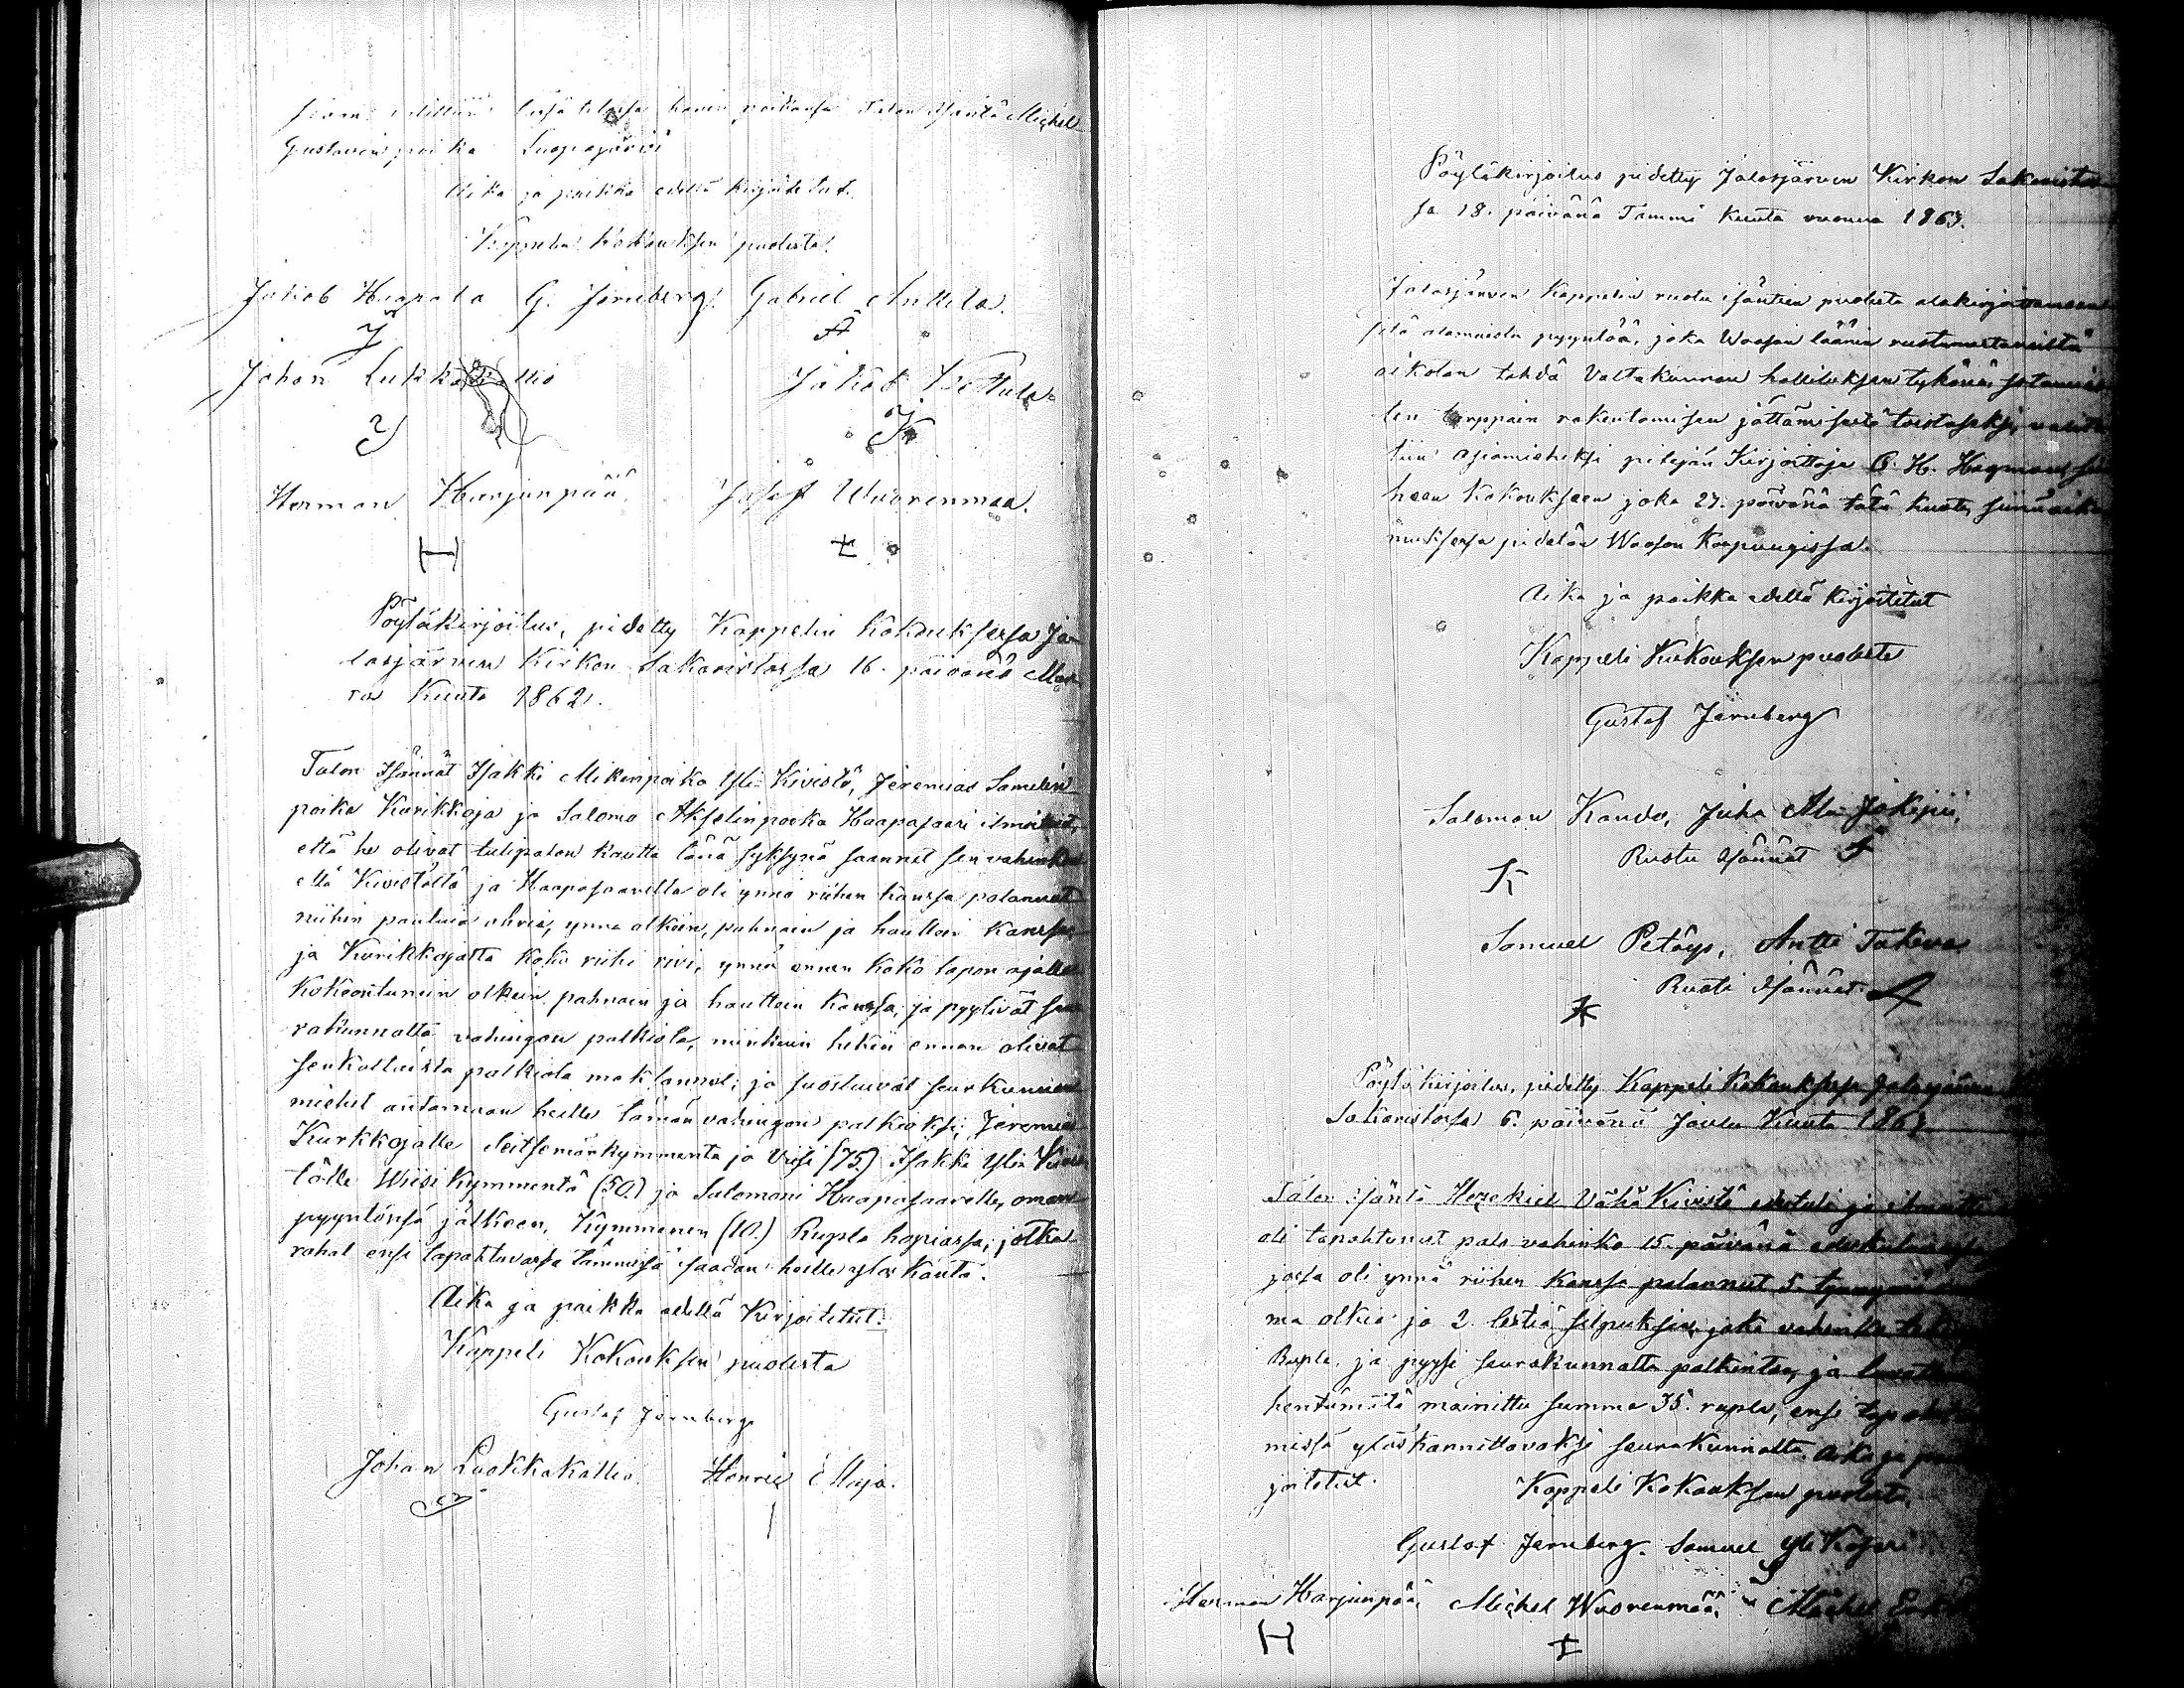 hanen paikansa Talon Isäntä Michel
Gustavin poika Luopajärvi
Aika ja paikka edellä kirjoitetut.
Kappelin Kokouksen puolesta.
Jakob Haapala G. Jernberg. Gabriel Anttila.
Johan Lukkakallio Jakob
Herman Harjunpää Josef Wuorenmaa.
H
Pöytäkirjoitus, pidetty Kappelin Kokouksessa Ja-
lasjärven Kirkon Sakaristossa 16. päivänä Mar
ras Kuuta 1862.
Talon Isännät Isakki Mikinpoika Yli-Kivistö, Jeremias Samelin
poika Kurikkoja ja Salomo Akselinpoika Haapasaari ilmoitit,
että he olivat tulipalon kautta tänä syksynä saannet sen vahinko
että Kivistöltä ja Haapasaarella oli ynnä riihen kanssa palannut
riihen ahria, ynnä olkein, pahnain ja hauttoin kanssa,
ja Kurikkojatta koko riihi rivi, ynnä ennen koko lapon ajalla
kokoontunein olkein pahnain ja hauttoin kanssa, ja pyytivät seu
rakunnalta vahingon palkiota, niinkuin hekin ennen olivat
senkaltaista palkiota maksannet; ja suostuivat seurkunnan
miehet antamaan heille tämän vahingon palkioksi; Jeremias
Kurkkojalle Seitsemänkymmentä ja Viisi (75.) Isakki Yli Kivis
tölle Wiisi Kymmentä (50.) ja Salomoni Haapasaarelle, oman
pyyntönsä jälkeen, Kymmenen (10.) Rupla hopiassa; jotka
rahat ensi tapahtuvassa tämmissä saadan heille ylös kanta.
Aika ja paikka edellä Kirjoitetut.
Kappeli Kokouksen puolesta
Gustaf Jernberg
Johan Luokkakallio. Henric Elloja.
Pöytäkirjoitus pidetty Jalasjärven Kirkon Sakaristos
sa 18. päivänä Tammi Kuuta vuonna 1863.
Jalasjärven Kappelin ruotu isäntien puolesta alakirjoittamaan
sitä alamaista pyyntöä, joka Waasan läänin
aikotan tehdä Valtakunnan hallituksen tykönä,
ten torppain rakentamisen jättämisestä toistaseksi, valit
tiin asiamieheksi pitäjän Kirjoittaja C. H. Hagman
heen Kokoukseen joka 27. päivänä tätä kuuta,
muksessa pidetän Waasan Kaupungissa.
Aika ja paikka edellä kirjoitetut
Kappeli Kokouksen puolesta
Gustaf Jernberg
Salomon Kando, Juha Ala Jokipii,
Ruotu Isännät
Samuel Petäys, Antti Takeva
Ruoti Isännät
Pöytäkirjoitus, pidetty Kappeli Kokouksessa Jalasjärven
Sakaristossa 6. päivänä Joulu Kuuta 1863
Talon Isäntä Hezekiel Vähä Kivistö edestuli ja ilmoitti
oli tapahtunut palo vahinko 15. päivänä
jossa oli ynnä riihen kanssa palannut 5.
ma olkia ja 2. lestiä silpuksia, joka vahinko
Rupla, ja pyysi seurakunnalta palkintoa, ja
hentämätä mainittu summa 35. rupla, ensi
missä ylöskannittavaksi seurakunnalta. Aika ja
joitetut. Kappeli Kokouksen puolesta.
Gustaf Jernberg. Samuel Yli Kojari
Herman Harjunpää Michel Wuorenmaa Michel
H